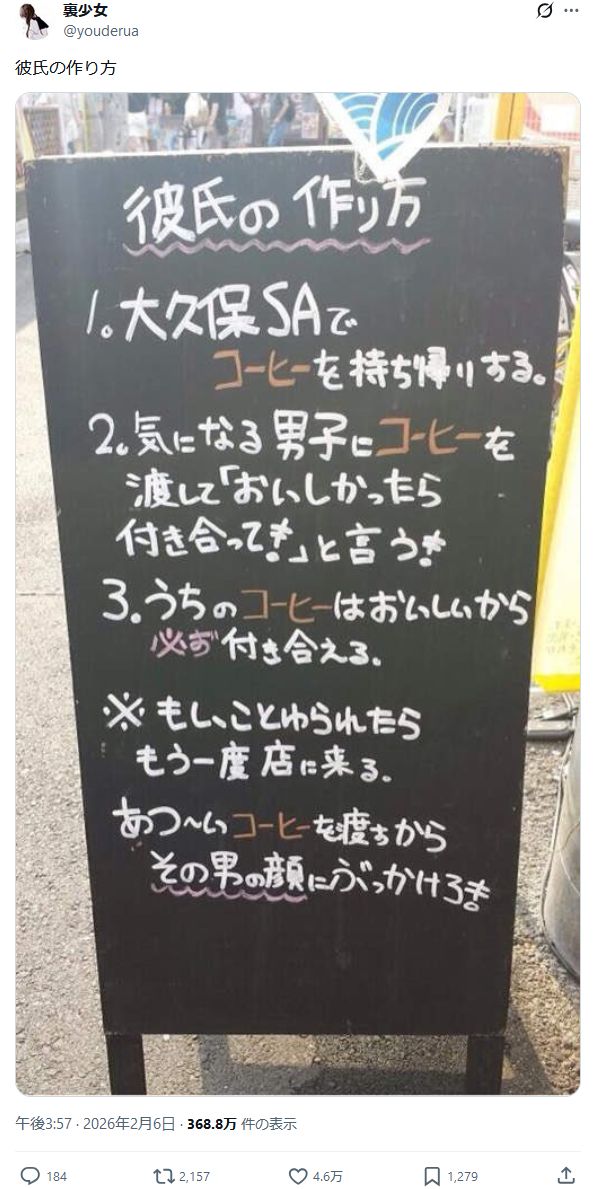 裏少女
@youderua
彼氏の作り方
彼氏の作り方
1.大久保SAで
コーヒーを持ち帰りする。
2.気になる男子にコーヒーを
渡して「おいしかったら
付き合って!」と言う!
3.うちのコーヒーはおいしいから
必ず付き合える。
※もし、ことわられたら
もう一度店に来る。
あつ〜いコーヒーを渡すから
その男の顔にぶっかけろ!
午後3:57 · 2026年2月6日 · 368.8万 件の表示
184 2,157 4.6万 1,279